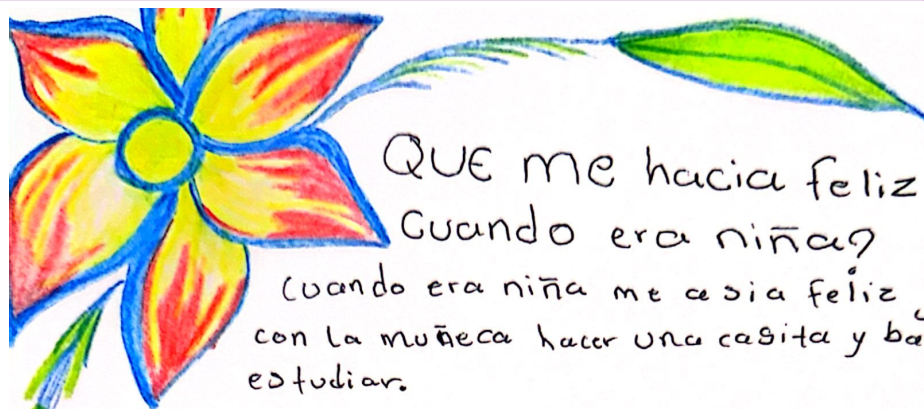 QUE me hacia feliz
cuando era niña?
cuando era niña me asia feliz
con la muñeca hacer una casita y
estudiar.